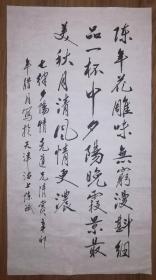 陈年花雕味无穷漫斟细
品一杯中夕阳晚霞景最
美秋月清风情更浓
七律夕阳情先道兄清赏辛卯
年腊月写于天津沽上陈